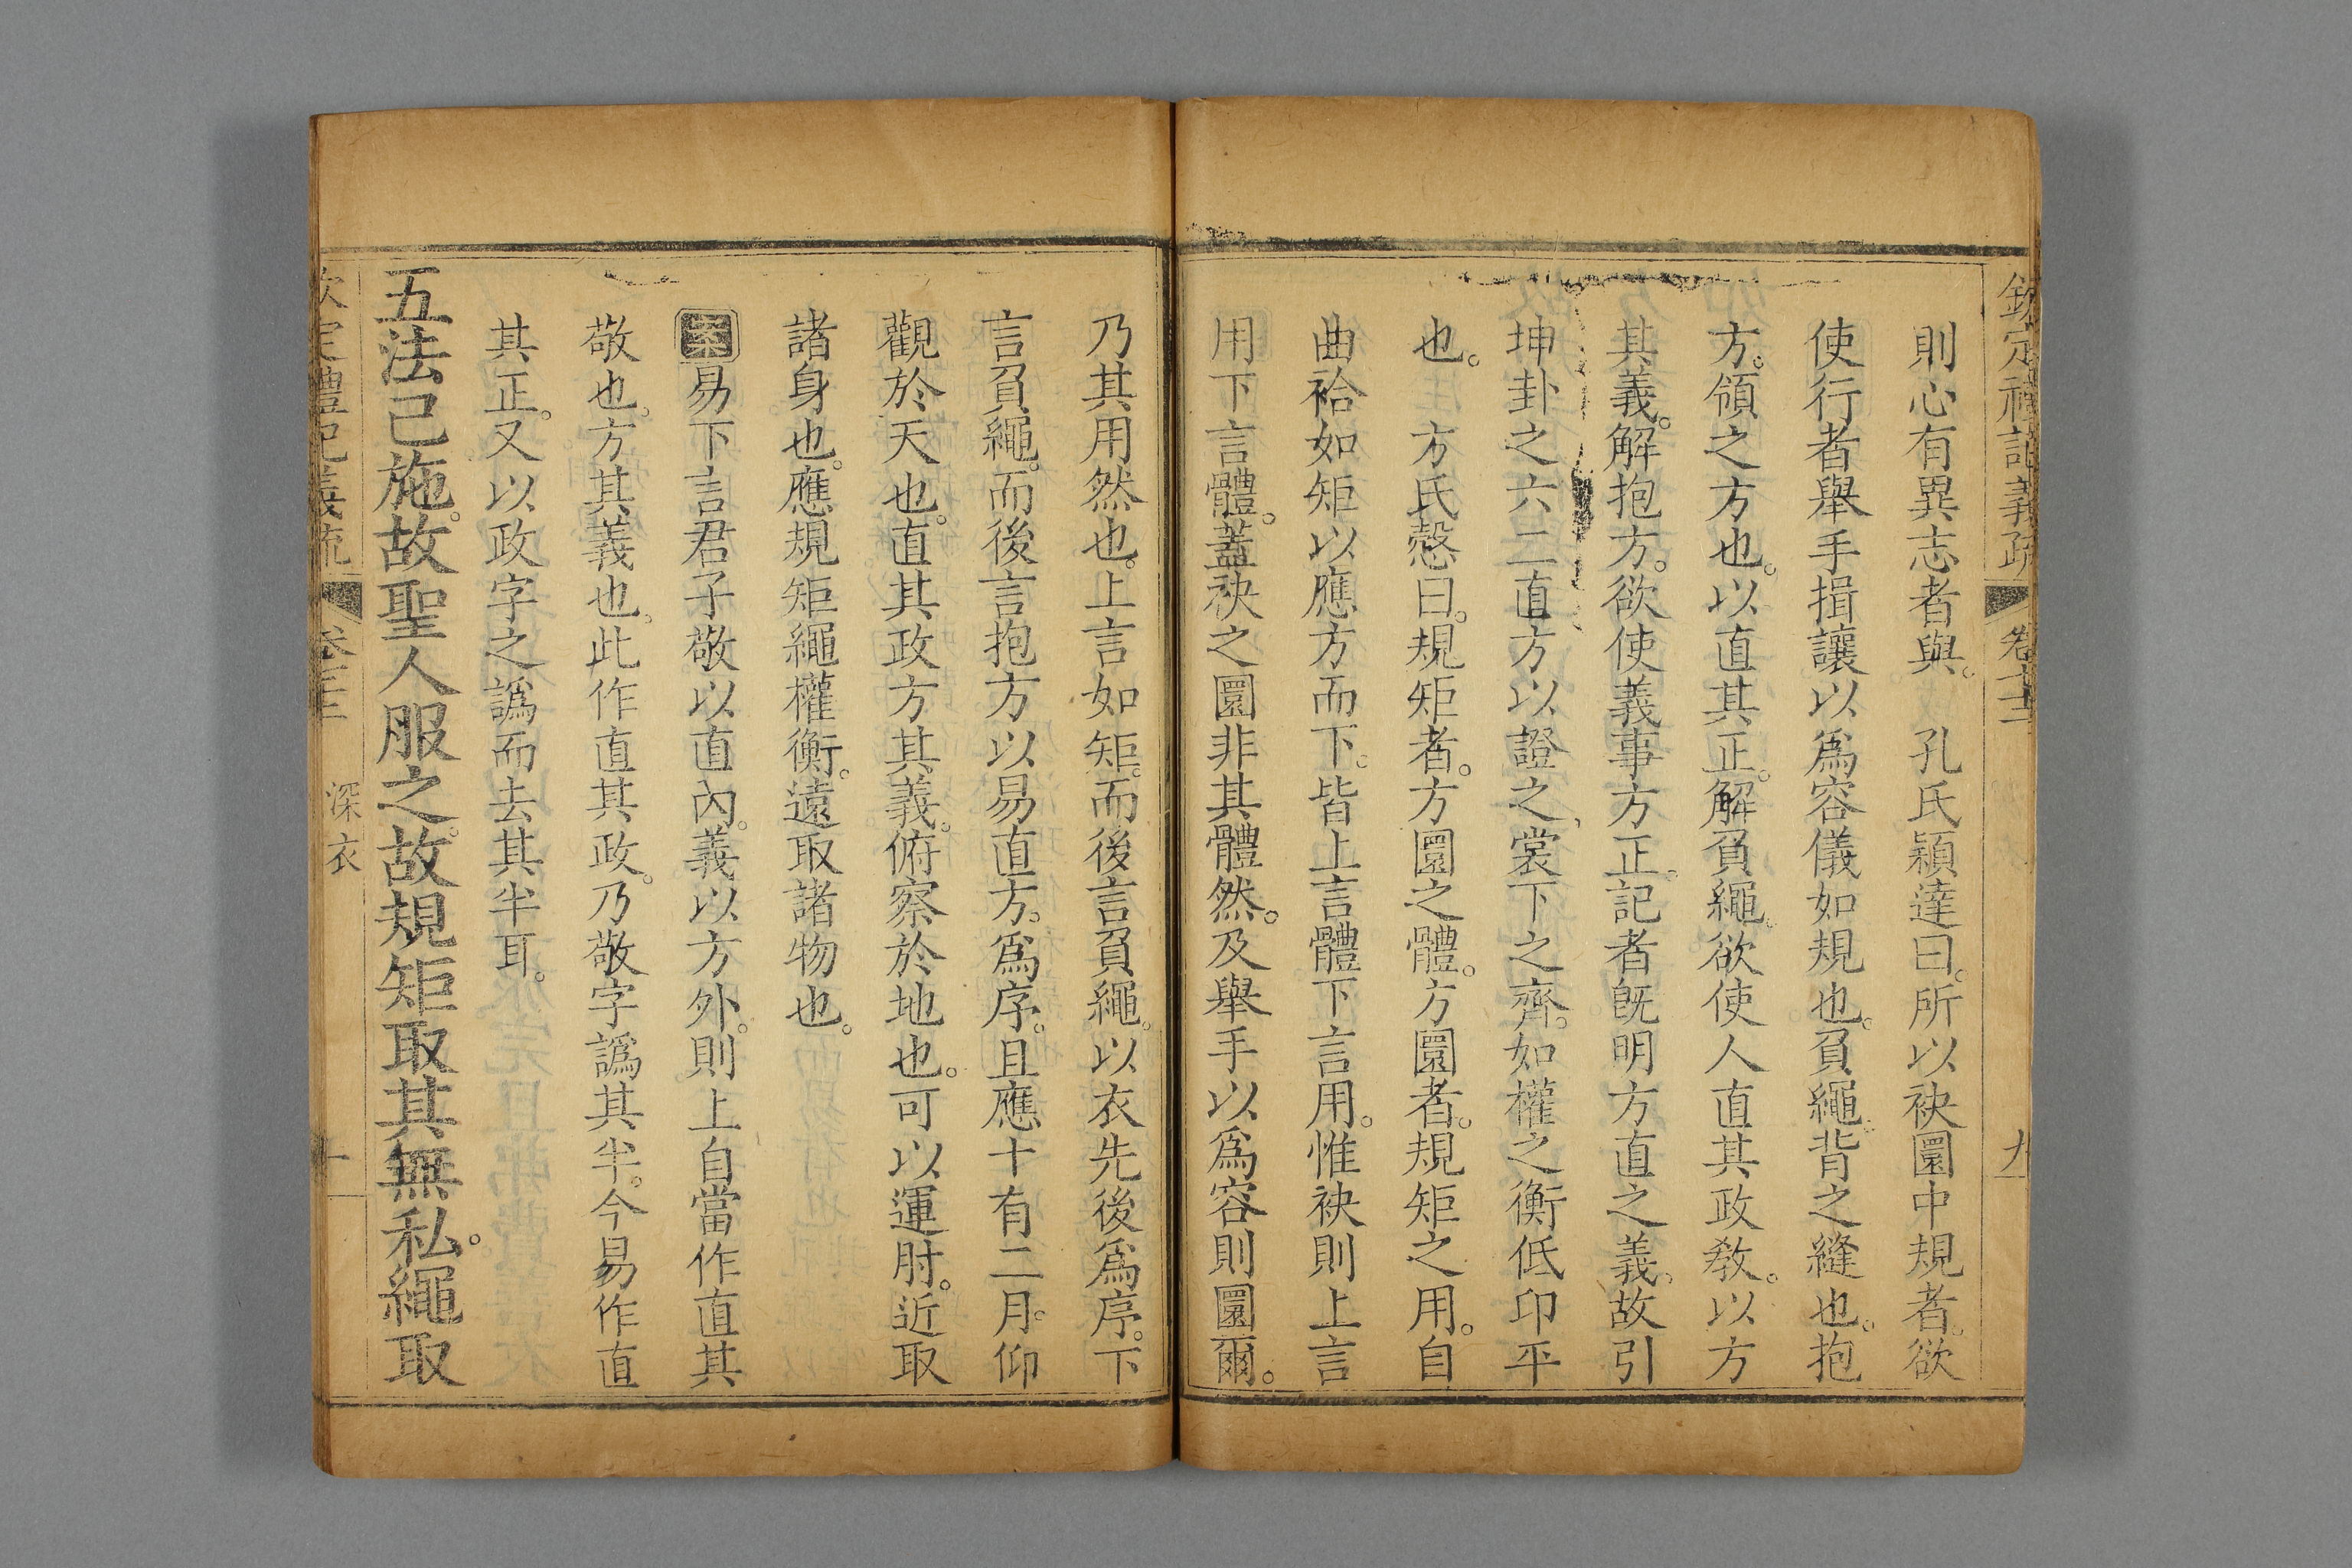 欽定禮記義疏 卷七十三 九
則心有異志者與。 孔氏穎達曰。所以袂圜中規者。欲
使行者舉手揖讓以爲容儀如規也。負繩。背之縫也。抱
方。領之方也。以直其正。解負繩。欲使人直其政敎。以方
其義。解抱方。欲使義事方正。記者旣明方直之義。故引
坤卦之六二直方以證之、裳下之齊。如權之衡低卬平
也。 方氏慤曰。規矩者。方圜之體。方圜者。規矩之用。自
曲袷如矩以應方而下。皆上言體下言用。惟袂則上言
用下言體。蓋袂之圜非其體然。及舉手以爲容則圜爾。
乃其用然也。上言如矩。而後言負繩。以衣先後爲序。下
言負繩。而後言抱方以易直方。爲序。且應十有二月。仰
觀於天也。直其政方其義。俯察於地也。可以運肘。近取
諸身也。應規矩繩權衡。遠取諸物也。
案易下言君子敬以直內。義以方外。則上自當作直其
敬也。方其義也。此作直其政。乃敬字譌其半。今易作直
其正。又以政字之譌而去其半耳。
五法已施。故聖人服之。故規矩取其無私。繩取
欽定禮記義疏 深衣